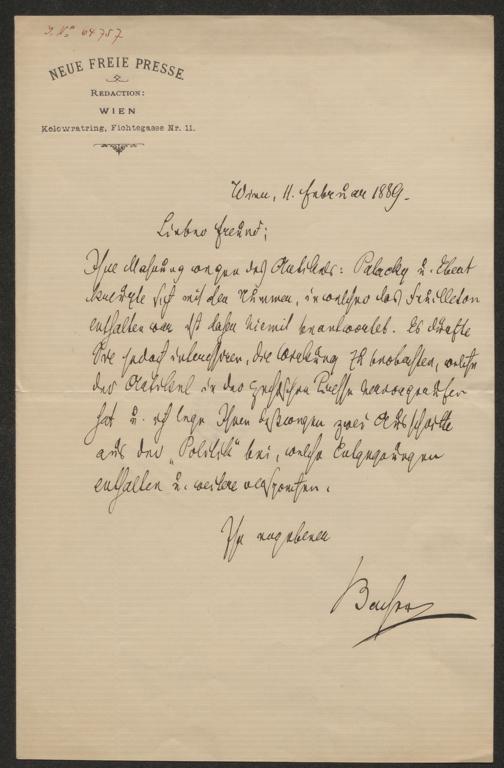 J. No 64757
NEUE FREIE PRESSE.
REDACTION:
WIEN
Kolowratring, Fichtegasse Nr. 11.
Wien, 11. Februar 1889.
Lieber Freund;
Ihre Mahnung wegen des Artikels: Palacky u.
kreuzte sich mit den Nummern, in welcher das Feuilleton
enthalten war ist hiemit beantwortet. Es dürfte
Sie jedoch interessiren, die Wirkung zu beobachten, welche
der Artikel in der czechischen Presse hervorgerufen
hat u. ich lege Ihnen deßwegen zwei Ausschnitte
aus der „Politik" bei, welche Entgegnungen
enthalten u. weitere versprechen.
Ihr ergebener
Bacher